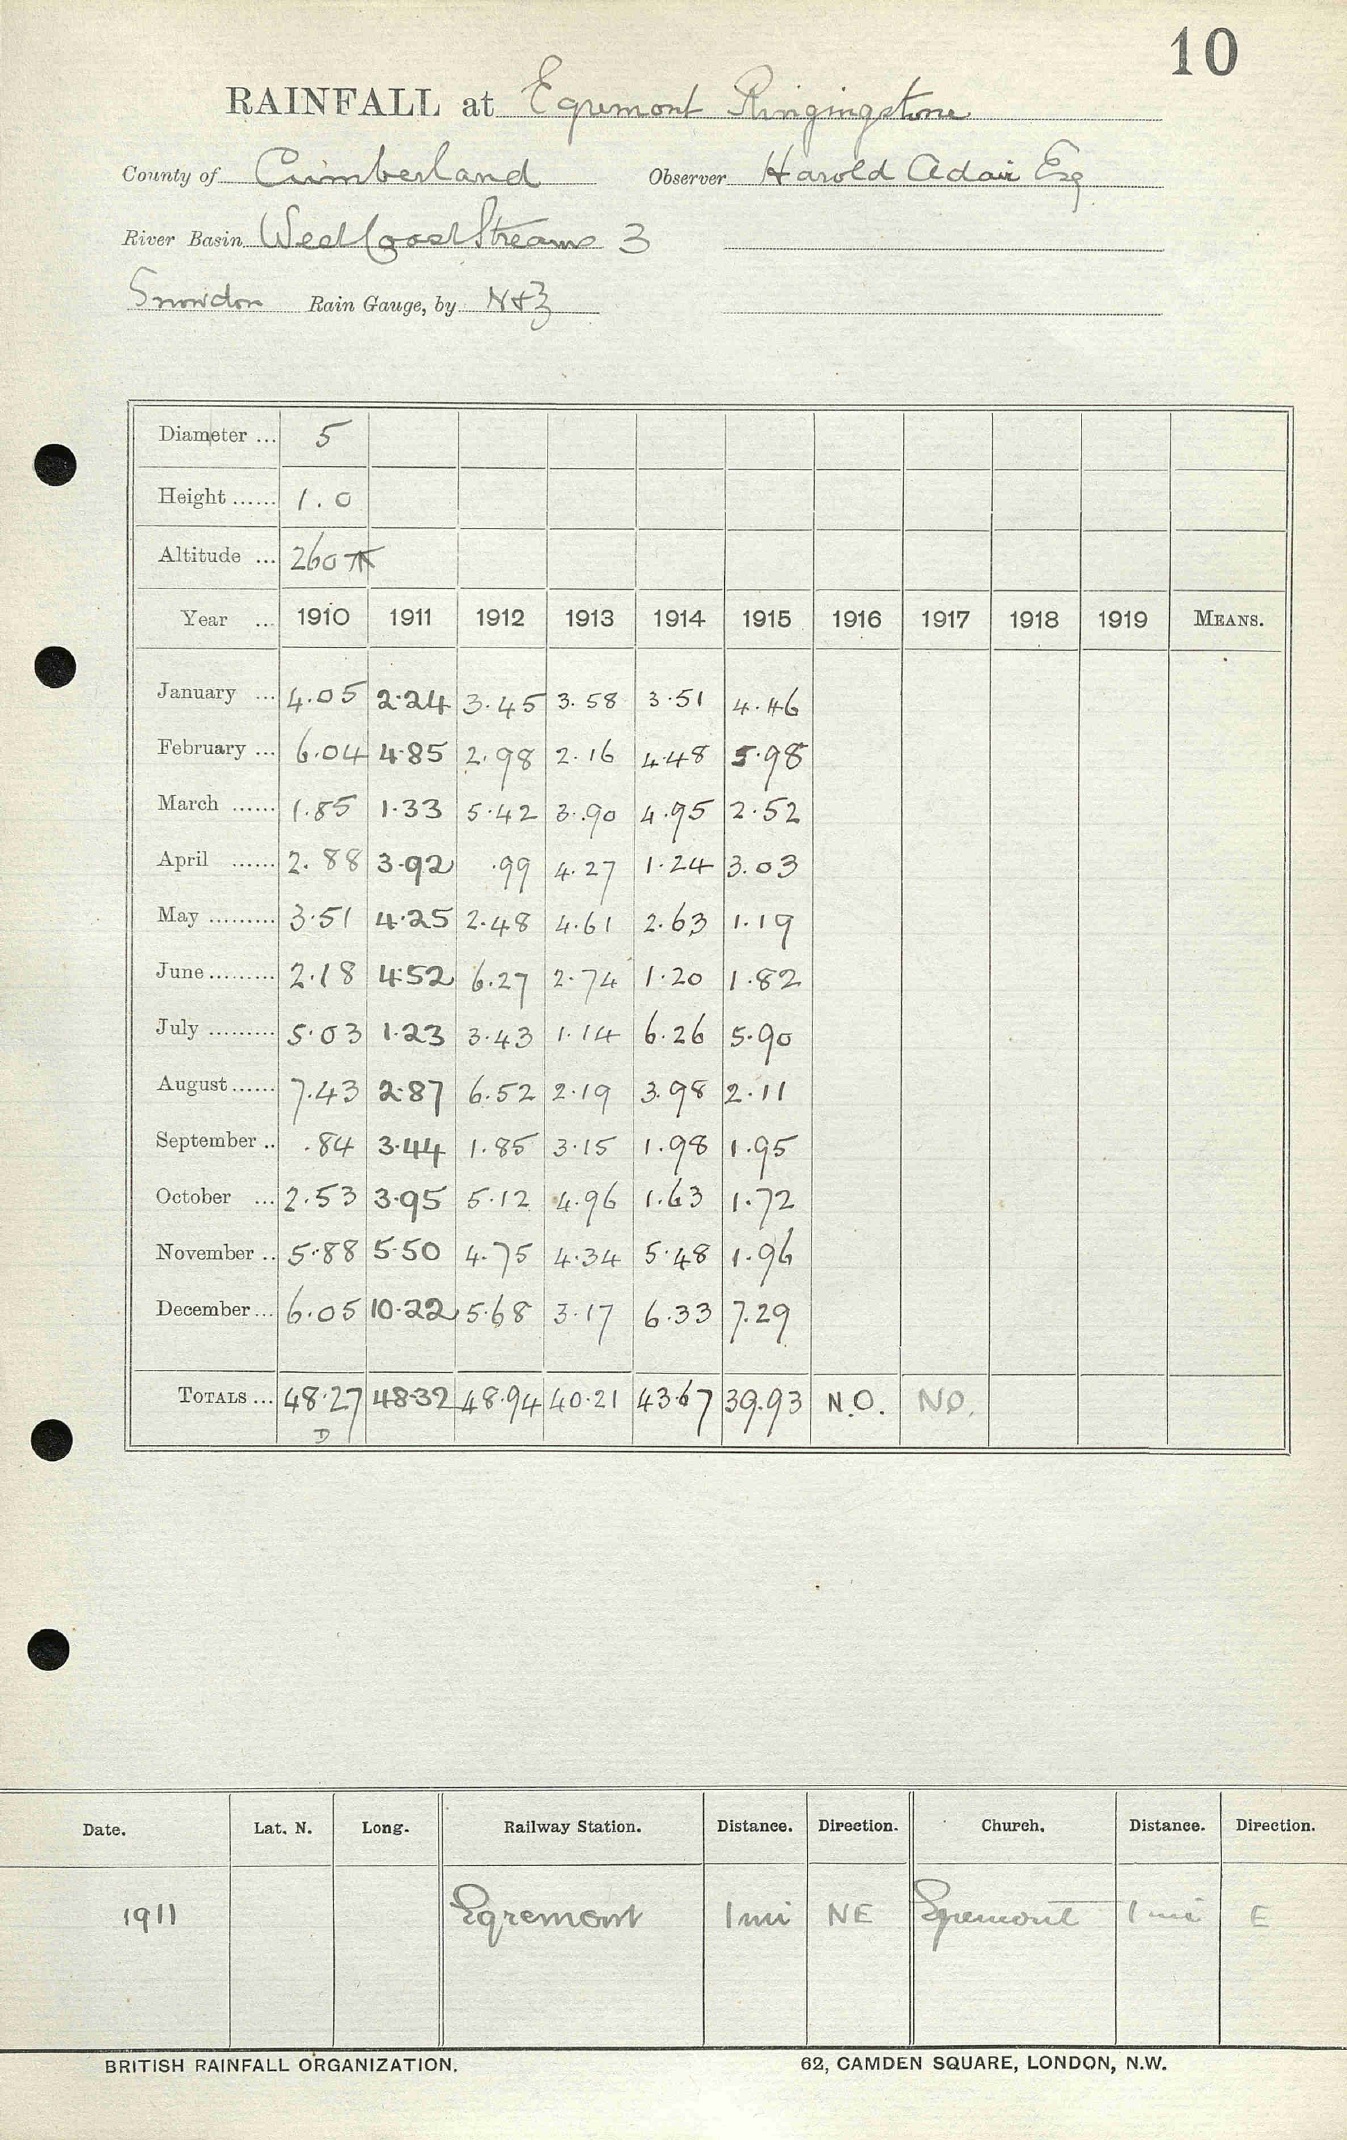 10
RAINFALL at Egremont Ringingstone
County of Cumberland Observer Harold Adair Esq
River Basin West Coast Streams 3
Snowdon Rain Gauge, by N+Z
Diameter ... 5
Height ...... 1.0
Altitude ... 260 ft
Year ... 1910 1911 1912 1913 1914 1915 1916 1917 1918 1919 MEANS.
January ... 4.05 2.24 3.45 3.58 3.51 4.46
February ... 6.04 4.85 2.98 2.16 4.48 5.98
March ...... 1.85 1.33 5.42 3.90 4.95 2.52
April ...... 2.88 3.92 .99 4.27 1.24 3.03
May ......... 3.51 4.25 2.48 4.61 2.63 1.19
June ......... 2.18 4.52 6.27 2.74 1.20 1.82
July ......... 5.03 1.23 3.43 1.14 6.26 5.90
August ...... 7.43 2.87 6.52 2.19 3.98 2.11
September .. .84 3.44 1.85 3.15 1.98 1.95
October ... 2.53 3.95 5.12 4.96 1.63 1.72
November .. 5.88 5.50 4.75 4.34 5.48 1.96
December ... 6.05 10.22 5.68 3.17 6.33 7.29
TOTALS ... 48.27 48.32 48.94 40.21 43.67 39.93 N.O. NO.
D
Date. Lat. N. Long. Railway Station. Distance. Direction. Church. Distance. Direction.
1911 Egremont 1 mi NE Egremont 1 mi E
BRITISH RAINFALL ORGANIZATION. 62, CAMDEN SQUARE, LONDON, N.W.